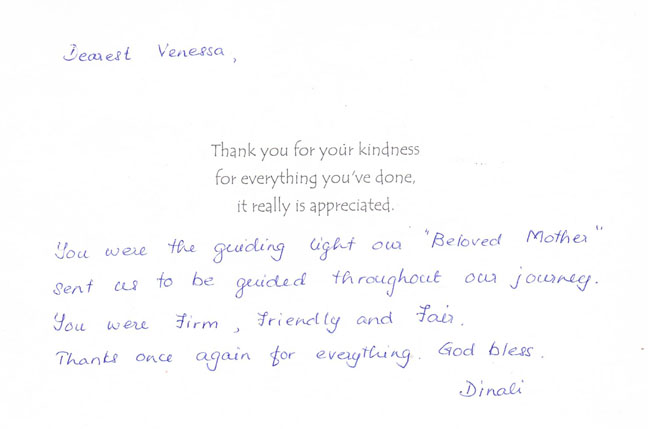 Dearest Venessa,
Thank you for your kindness
for everything you've done,
it really is appreciated.
You were the guiding light our "Beloved Mother"
sent us to be guided throughout our journey.
You were Firm, Friendly and Fair.
Thanks once again for everything. God bless.
Dinali